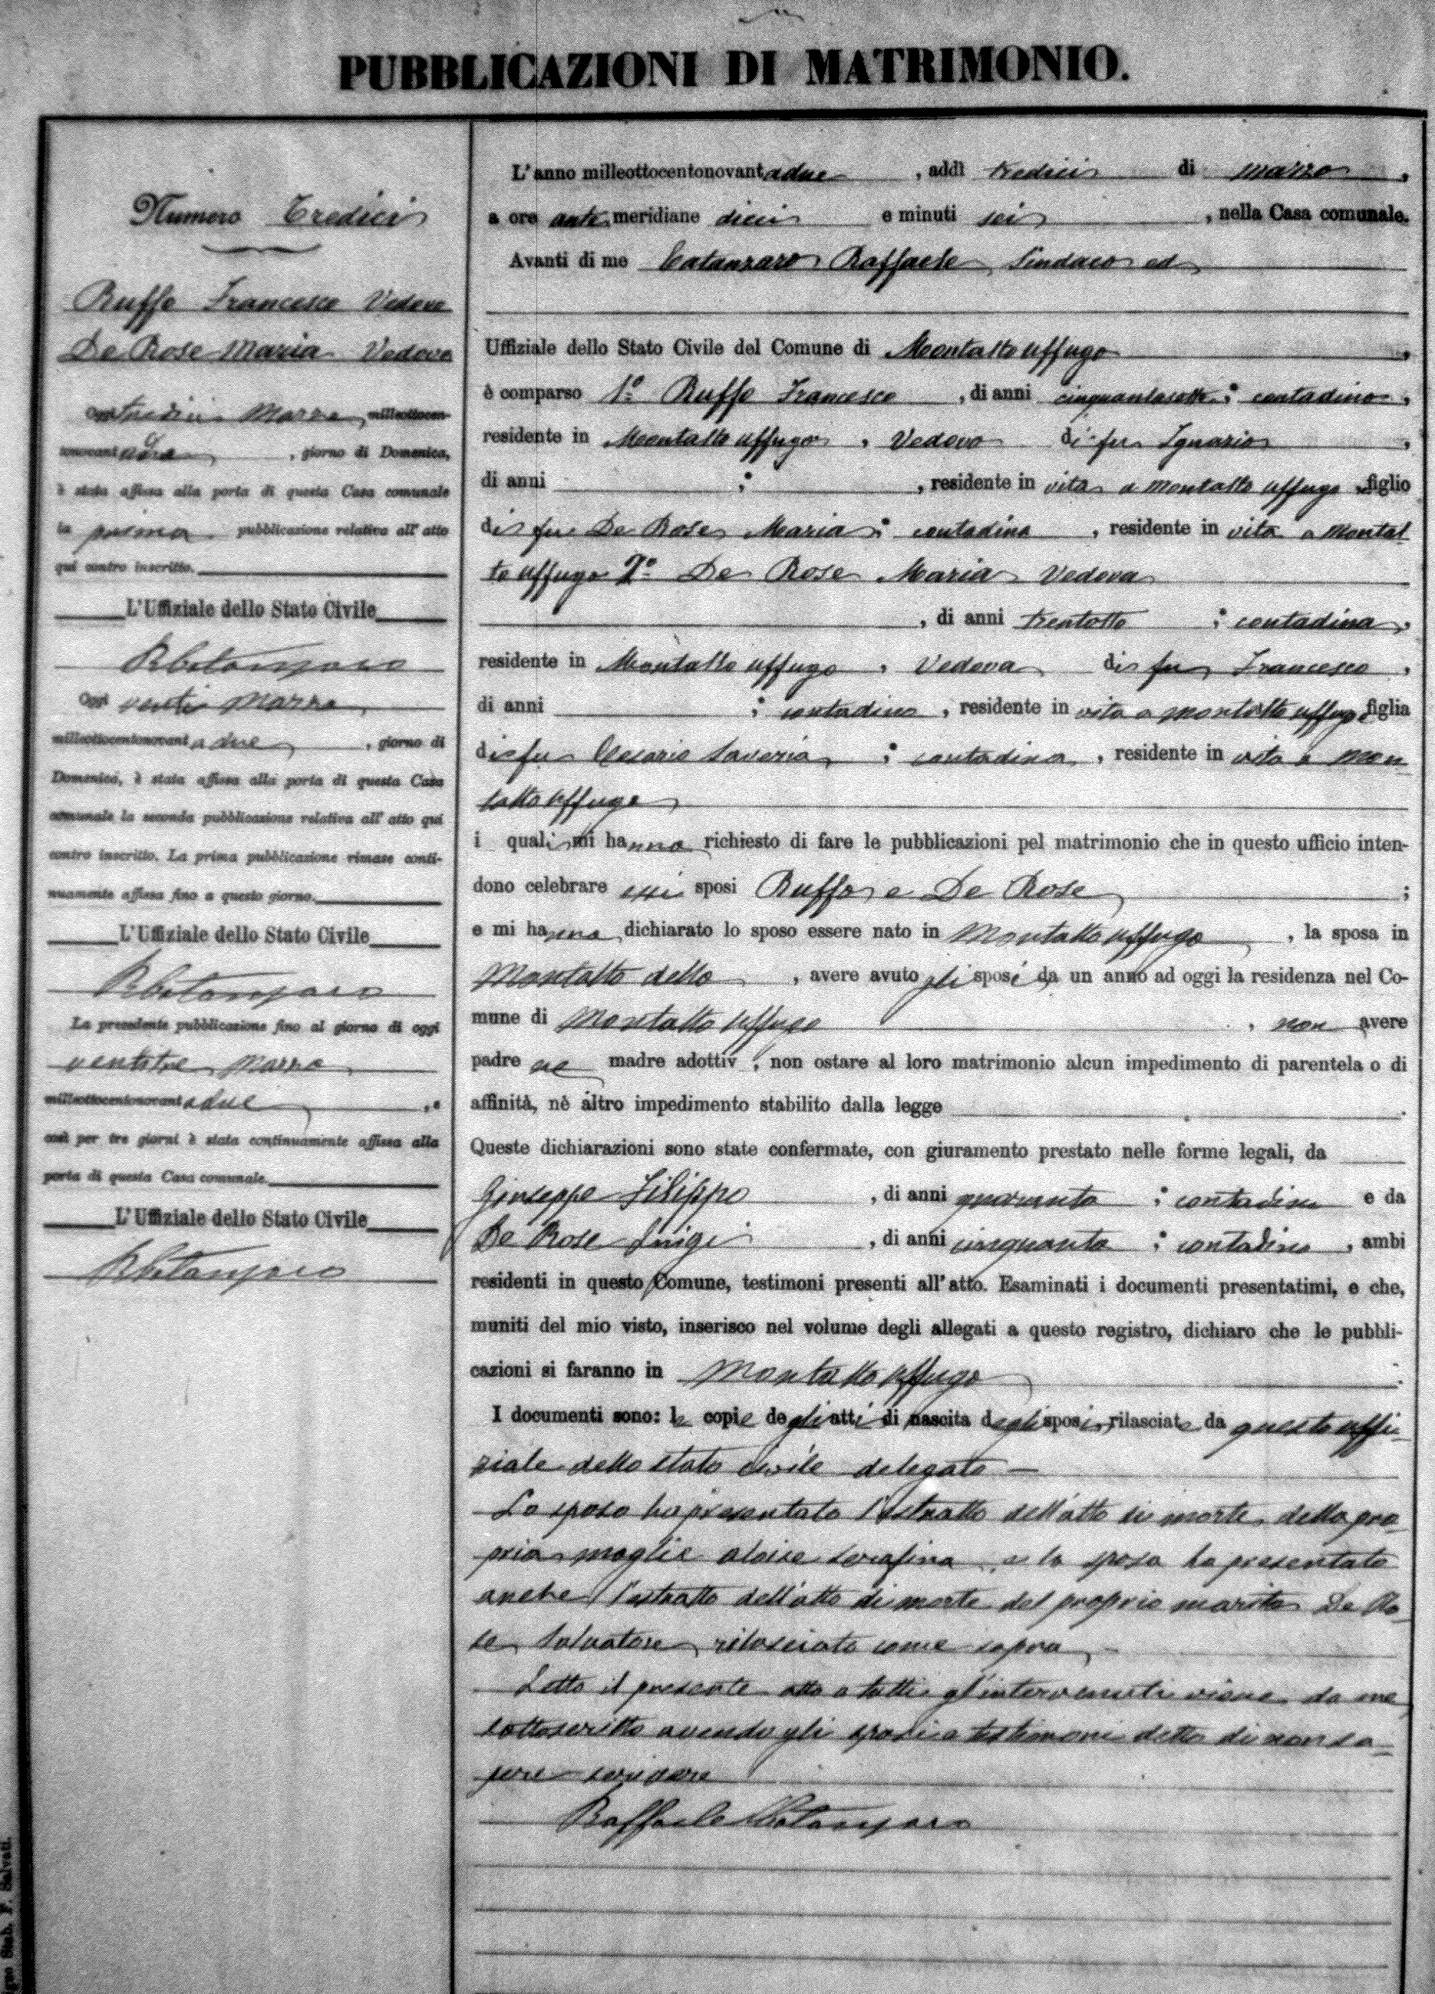 PUBBLICAZIONI DI MATRIMONIO.
Numero Tredici
Ruffo Francesco Vedovo
De Rose Maria Vedova
Oggi tredici Marzo, milleottocen-
tonovantadue, giorno di Domenica,
è stata affissa alla porta di questa Casa comunale
la prima pubblicazione relativa all' atto
qui contro inscritto.
L'Uffiziale dello Stato Civile
RCatanzaro
Oggi venti Marzo
milleottocentonovantadue, giorno di
Domenica, è stata affissa alla porta di questa Casa
comunale la seconda pubblicazione relativa all' atto qui
contro inscritto. La prima pubblicazione rimase conti-
nuamente affissa fino a questo giorno.
L'Uffiziale dello Stato Civile
RCatanzaro
La precedente pubblicazione fino al giorno di oggi
ventitre Marzo
milleottocentonovantadue, e
così per tre giorni è stata continuamente affissa alla
porta di questa Casa comunale.
L'Uffiziale dello Stato Civile
RCatanzaro
L'anno milleottocentonovantadue, addì tredici di marzo,
a ore anti meridiane dieci e minuti sei, nella Casa comunale.
Avanti di me Catanzaro Raffaele Sindaco ed
Uffiziale dello Stato Civile del Comune di Montalto Uffugo,
è comparso 1º Ruffo Francesco, di anni cinquantasette; contadino,
residente in Montalto Uffugo, Vedovo di fu Ignazio,
di anni ; , residente in vita a Montalto Uffugo, figlio
di fu De Rose Maria; contadina, residente in vita a Montal-
to Uffugo 2º De Rose Maria Vedova
, di anni trentotto; contadina,
residente in Montalto Uffugo, Vedova di fu Francesco,
di anni ; contadino, residente in vita a Montalto Uffugo figlia
di fu Cesario Saveria; contadina, residente in vita a Mon-
talto Uffugo
i quali mi hanno richiesto di fare le pubblicazioni pel matrimonio che in questo ufficio inten-
dono celebrare essi sposi Ruffo e De Rose;
e mi hanno dichiarato lo sposo essere nato in Montalto Uffugo, la sposa in
Montalto detto, avere avuto gli sposi da un anno ad oggi la residenza nel Co-
mune di Montalto Uffugo, non avere
padre ne madre adottiv; non ostare al loro matrimonio alcun impedimento di parentela o di
affinità, nè altro impedimento stabilito dalla legge.
Queste dichiarazioni sono state confermate, con giuramento prestato nelle forme legali, da
Giuseppe Filippo, di anni quaranta; contadino e da
De Rose Luigi, di anni cinquanta; contadino, ambi
residenti in questo Comune, testimoni presenti all'atto. Esaminati i documenti presentatimi, e che,
muniti del mio visto, inserisco nel volume degli allegati a questo registro, dichiaro che le pubbli-
cazioni si faranno in Montalto Uffugo.
I documenti sono: le copie degli atti di nascita degli sposi, rilasciate da questo uffi-
ziale dello stato civile delegato —
Lo sposo ha presentato l'estratto dell'atto di morte della pro-
pria moglie Aloise Serafina, e la sposa ha presentato
anche l'estratto dell'atto di morte del proprio marito De Ro-
se Salvatore, rilasciato come sopra —
Letto il presente atto a tutti gl'intervenuti viene da me
sottoscritto avendo gli sposi e testimoni detto di non sa-
pere scrivere
Raffaele Catanzaro
Stab. F. Salvati.